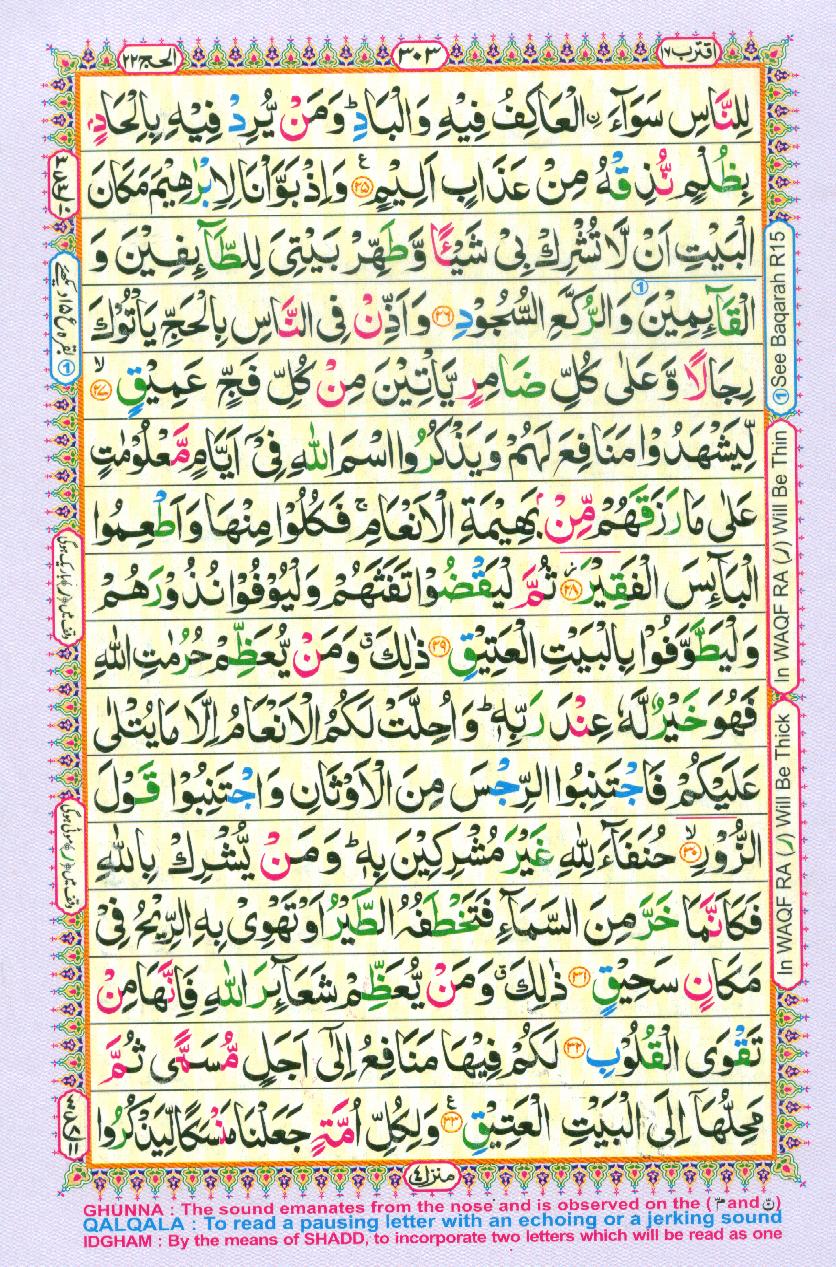 اقترب ١٧
٣٠٣
الحج ٢٢
لِلنَّاسِ سَوَآءَ ۨالْعَاكِفُ فِيْهِ وَالْبَادِ ؕ وَمَنْ يُّرِدْ فِيْهِ بِاِلْحَادٍۭ
بِظُلْمٍ نُّذِقْهُ مِنْ عَذَابٍ اَلِيْمٍ ﴿٢٥﴾ۧ وَاِذْ بَوَّاْنَا لِاِبْرٰهِيْمَ مَكَانَ
الْبَيْتِ اَنْ لَّا تُشْرِكْ بِىْ شَيْـًٔا وَّطَهِّرْ بَيْتِىَ لِلطَّآئِفِيْنَ وَ
الْقَآئِمِيْنَ وَالرُّكَّعِ السُّجُوْدِ ﴿٢٦﴾ وَاَذِّنْ فِى النَّاسِ بِالْحَجِّ يَاْتُوْكَ
رِجَالًا وَّعَلٰى كُلِّ ضَامِرٍ يَّاْتِيْنَ مِنْ كُلِّ فَجٍّ عَمِيْقٍ ۙ﴿٢٧﴾
لِّيَشْهَدُوْا مَنَافِعَ لَهُمْ وَيَذْكُرُوا اسْمَ اللّٰهِ فِىْٓ اَيَّامٍ مَّعْلُوْمٰتٍ
عَلٰى مَا رَزَقَهُمْ مِّنْۢ بَهِيْمَةِ الْاَنْعَامِ ۚ فَكُلُوْا مِنْهَا وَاَطْعِمُوا
الْبَآئِسَ الْفَقِيْرَ ؗ﴿٢٨﴾ ثُمَّ لْيَقْضُوْا تَفَثَهُمْ وَلْيُوْفُوْا نُذُوْرَهُمْ
وَلْيَطَّوَّفُوْا بِالْبَيْتِ الْعَتِيْقِ ﴿٢٩﴾ ذٰلِكَ ۗ وَمَنْ يُّعَظِّمْ حُرُمٰتِ اللّٰهِ
فَهُوَ خَيْرٌ لَّهٗ عِنْدَ رَبِّهٖ ؕ وَاُحِلَّتْ لَكُمُ الْاَنْعَامُ اِلَّا مَا يُتْلٰى
عَلَيْكُمْ فَاجْتَنِبُوا الرِّجْسَ مِنَ الْاَوْثَانِ وَاجْتَنِبُوْا قَوْلَ
الزُّوْرِ ۙ﴿٣٠﴾ حُنَفَآءَ لِلّٰهِ غَيْرَ مُشْرِكِيْنَ بِهٖ ؕ وَمَنْ يُّشْرِكْ بِاللّٰهِ
فَكَاَنَّمَا خَرَّ مِنَ السَّمَآءِ فَتَخْطَفُهُ الطَّيْرُ اَوْ تَهْوِىْ بِهِ الرِّيْحُ فِىْ
مَكَانٍ سَحِيْقٍ ﴿٣١﴾ ذٰلِكَ ۗ وَمَنْ يُّعَظِّمْ شَعَآئِرَ اللّٰهِ فَاِنَّهَا مِنْ
تَقْوَى الْقُلُوْبِ ﴿٣٢﴾ لَكُمْ فِيْهَا مَنَافِعُ اِلٰٓى اَجَلٍ مُّسَمًّى ثُمَّ
مَحِلُّهَآ اِلَى الْبَيْتِ الْعَتِيْقِ ﴿٣٣﴾ۧ وَلِكُلِّ اُمَّةٍ جَعَلْنَا مَنْسَكًا لِّيَذْكُرُوا
① See Baqarah R15
In WAQF RA (ر) Will Be Thin
In WAQF RA (ر) Will Be Thick
منزل ٤
GHUNNA : The sound emanates from the nose and is observed on the ( مّ and نّ)
QALQALA : To read a pausing letter with an echoing or a jerking sound
IDGHAM : By the means of SHADD, to incorporate two letters which will be read as one